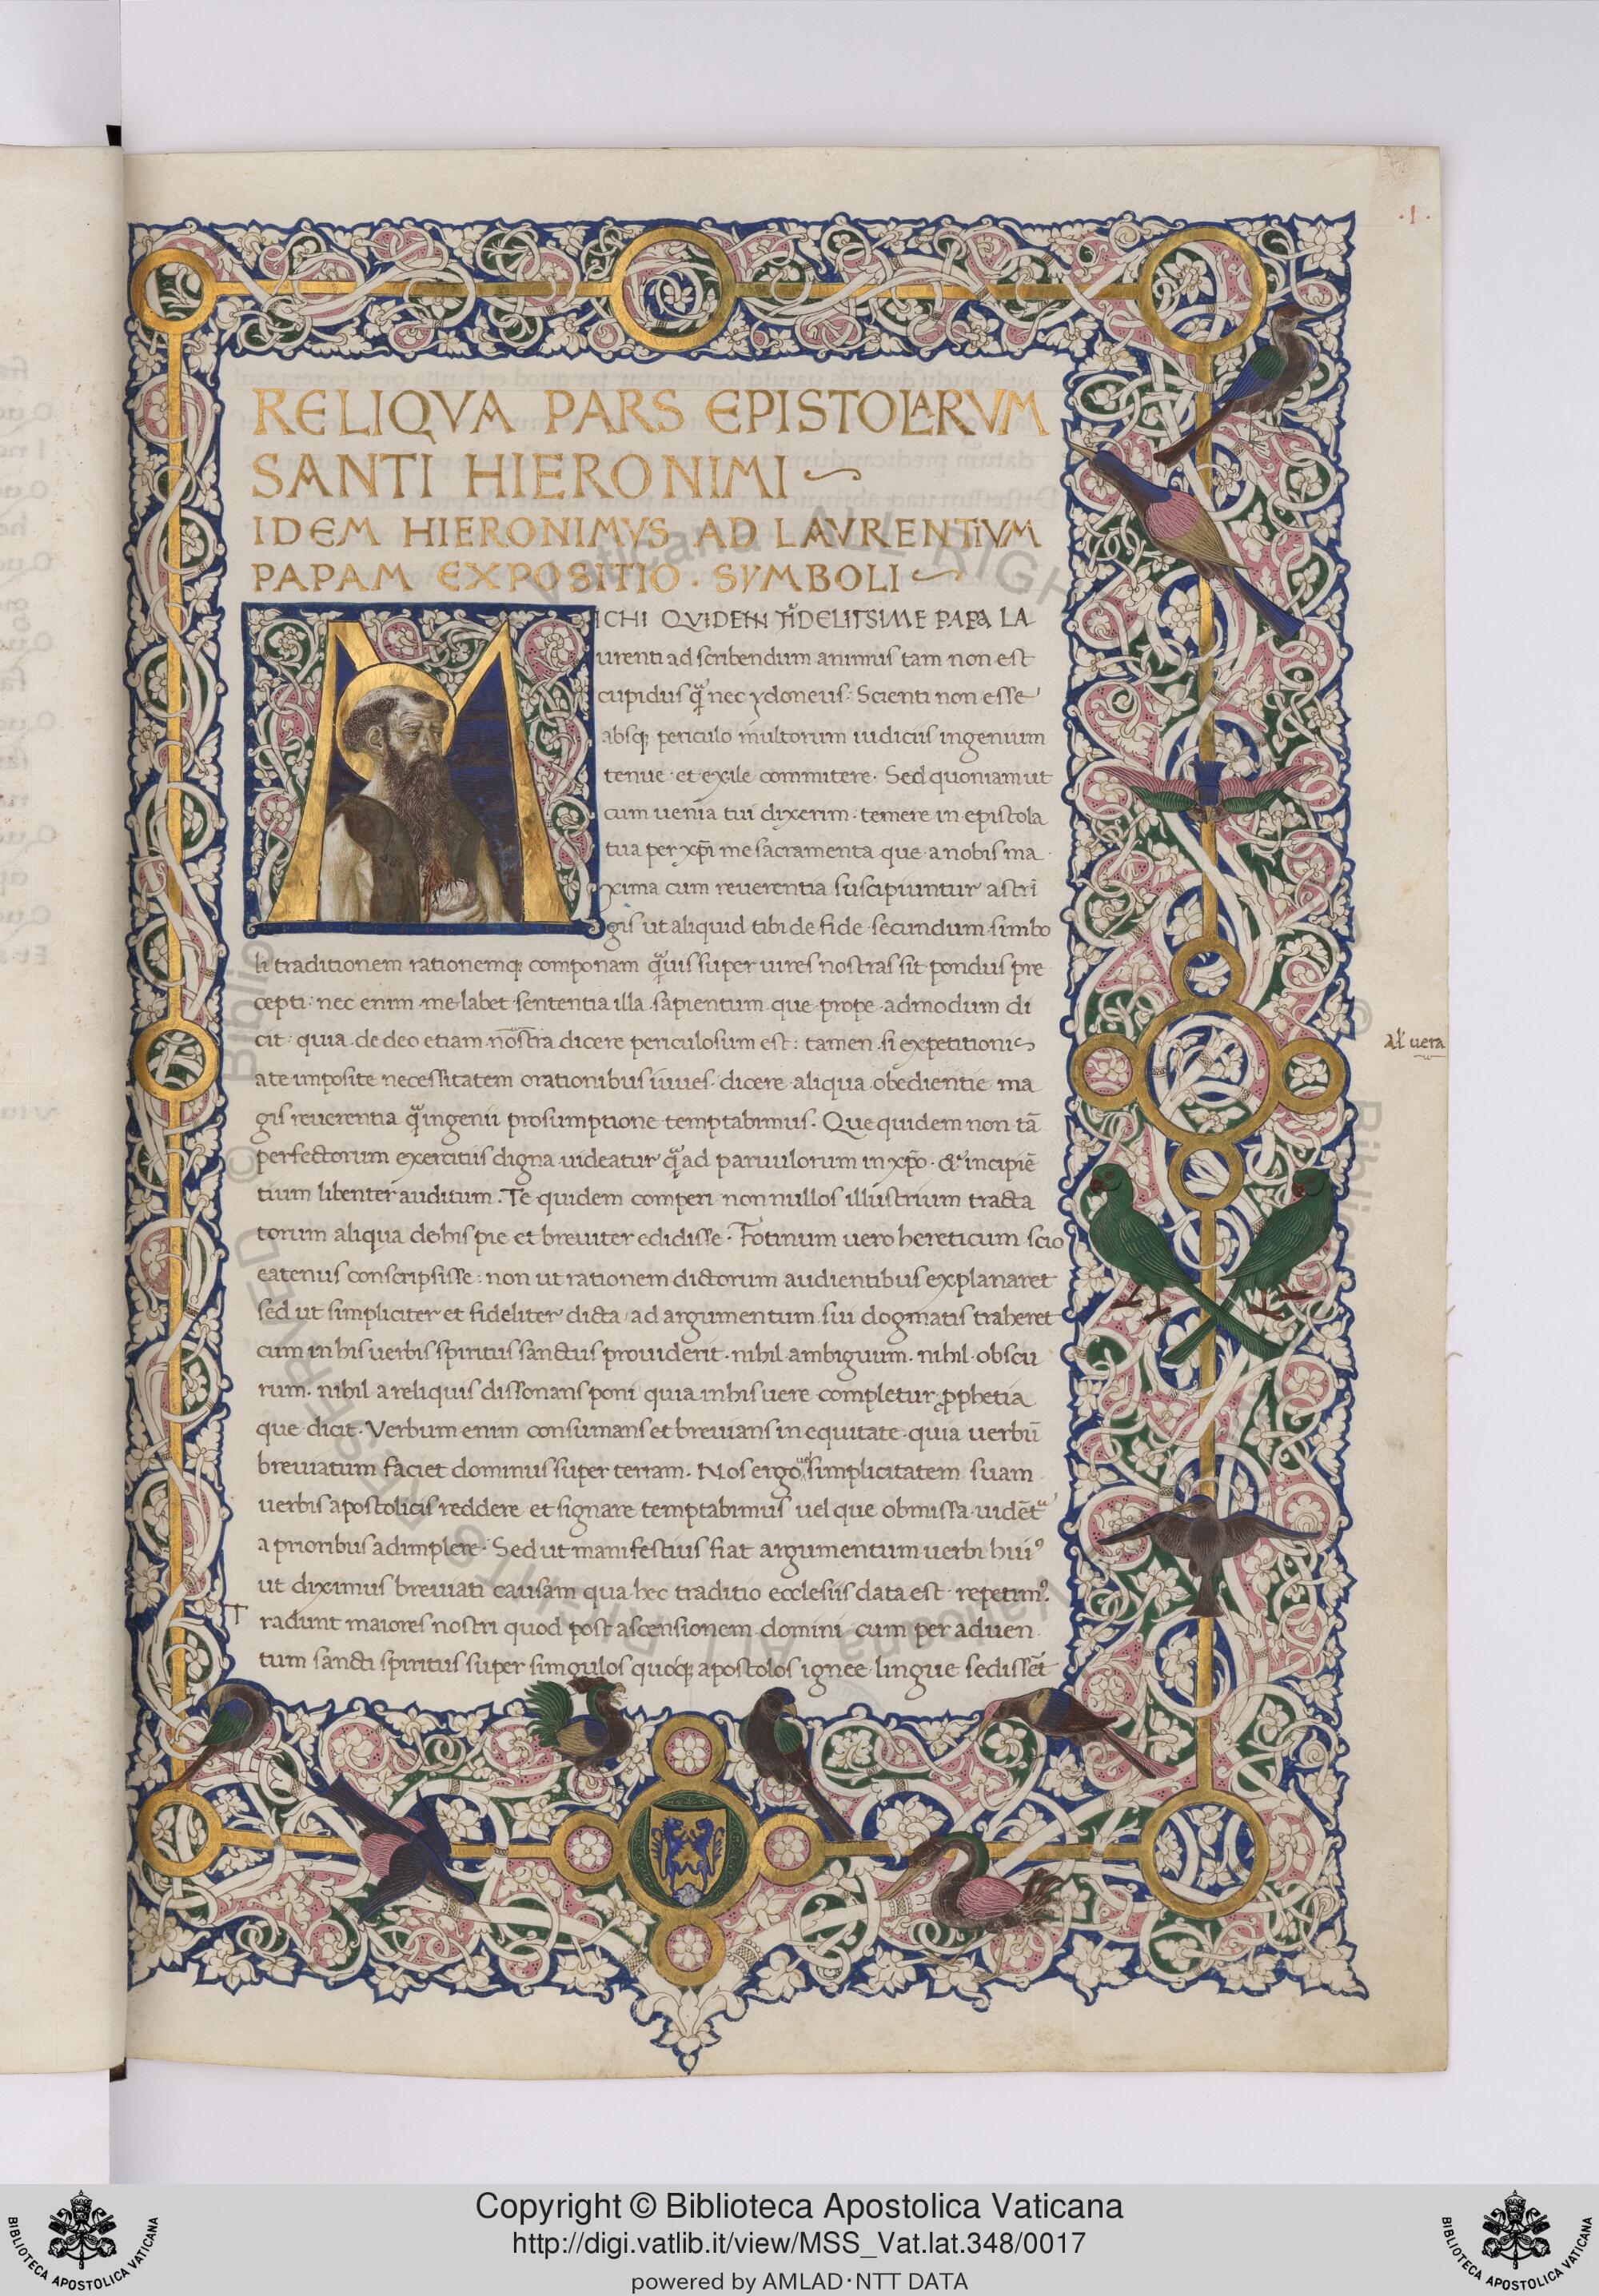 ·1·
RELIQVA PARS EPISTOLARVM
SANTI HIERONIMI
IDEM HIERONIMVS AD LAVRENTIVM
PAPAM EXPOSITIO · SYMBOLI
MICHI QVIDEM FIDELITSIME PAPA LA
urenti ad scribendum animus tam non est
cupidus q̃ nec ydoneus: Scienti non esse
absq; periculo multorum iudiciis ingenium
tenue et exile commitere. Sed quoniam ut
cum uenia tui dixerim temere in epistola
tua per xp̄i me sacramenta que a nobis ma
xima cum reuerentia suscipiuntur astri
gis ut aliquid tibi de fide secundum simbo
li traditionem rationemq; componam q̃uis super uires nostras sit pondus pre
cepti: nec enim me labet sententia illa sapientum que prope admodum di
cit: quia de deo etiam nostra dicere periculosum est: tamen si expetitionis
ate imposite necessitatem orationibus iuues dicere aliqua obedientie ma
gis reuerentia q̃ ingenii prosumptione temptabimus. Que quidem non tā
perfectorum exercitiis digna uideatur q̃ ad paruulorum in xp̄o · & incipiē
tium libenter auditum. Te quidem comperi non nullos illustrium tracta
torum aliqua de his pie et breuiter edidisse. Fotinum uero hereticum scio
eatenus conscripsisse: non ut rationem dictorum audientibus explanaret
sed ut simpliciter et fideliter dicta ad argumentum sui dogmatis traheret
cum in his uerbis spiritus sanctus prouiderit nihil ambiguum. nihil obscu
rum. nihil a reliquis dissonans poni quia in his uere completur p̱phetia
que dicit. Verbum enim consumans et breuians in equitate quia uerbū
breuiatum faciet dominus super terram. Nos ergo simplicitatem suam
uerbis apostolicis reddere et signare temptabimus uel que obmissa uidēt
a prioribus adimplere. Sed ut manifestius fiat argumentum uerbi huiꝰ
ut diximus breuiati causam qua hec traditio ecclesiis data est repetimꝰ.
Tradunt maiores nostri quod post ascensionem domini cum per aduen
tum sancti spiritus super singulos quosq; apostolos ignee lingue sedissēt
Al' uera
Copyright © Biblioteca Apostolica Vaticana
http://digi.vatlib.it/view/MSS_Vat.lat.348/0017
powered by AMLAD·NTT DATA
BIBLIOTECA APOSTOLICA VATICANA
BIBLIOTECA APOSTOLICA VATICANA